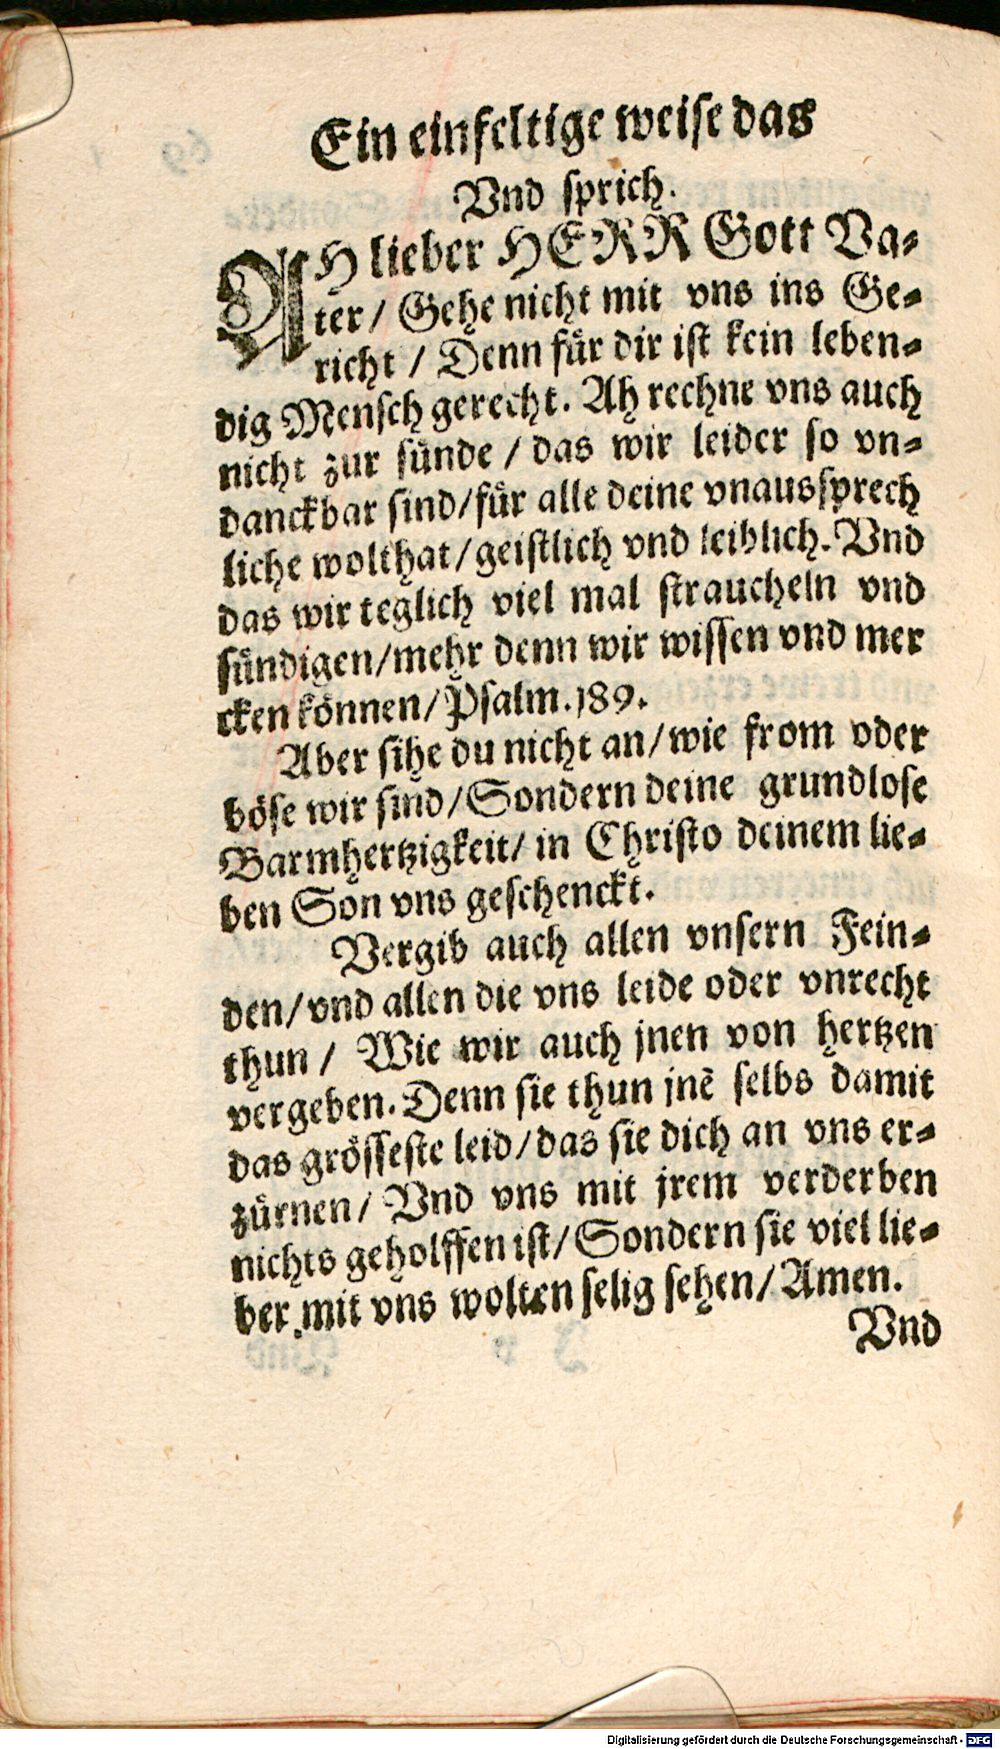 Ein einfeltige weise das
Vnd sprich.
AH lieber HERR Gott Va-
ter/ Gehe nicht mit vns ins Ge-
richt / Denn für dir ist kein leben-
dig Mensch gerecht. Ah rechne vns auch
nicht zur sünde / das wir leider so vn-
danckbar sind/für alle deine vnaussprech
liche wolthat/geistlich vnd leiblich. Vnd
das wir teglich viel mal straucheln vnd
sündigen/mehr denn wir wissen vnd mer
cken können/Psalm.189.
Aber sihe du nicht an/wie from oder
böse wir sind/Sondern deine grundlose
Barmhertzigkeit/ in Christo deinem lie-
ben Son vns geschenckt.
Vergib auch allen vnsern Fein-
den/vnd allen die vns leide oder vnrecht
thun / Wie wir auch jnen von hertzen
vergeben. Denn sie thun jnē selbs damit
das grösseste leid/das sie dich an vns er-
zürnen/ Vnd vns mit jrem verderben
nichts geholffen ist/Sondern sie viel lie-
ber mit vns wolten selig sehen/Amen.
Vnd
Digitalisierung gefördert durch die Deutsche Forschungsgemeinschaft - DFG